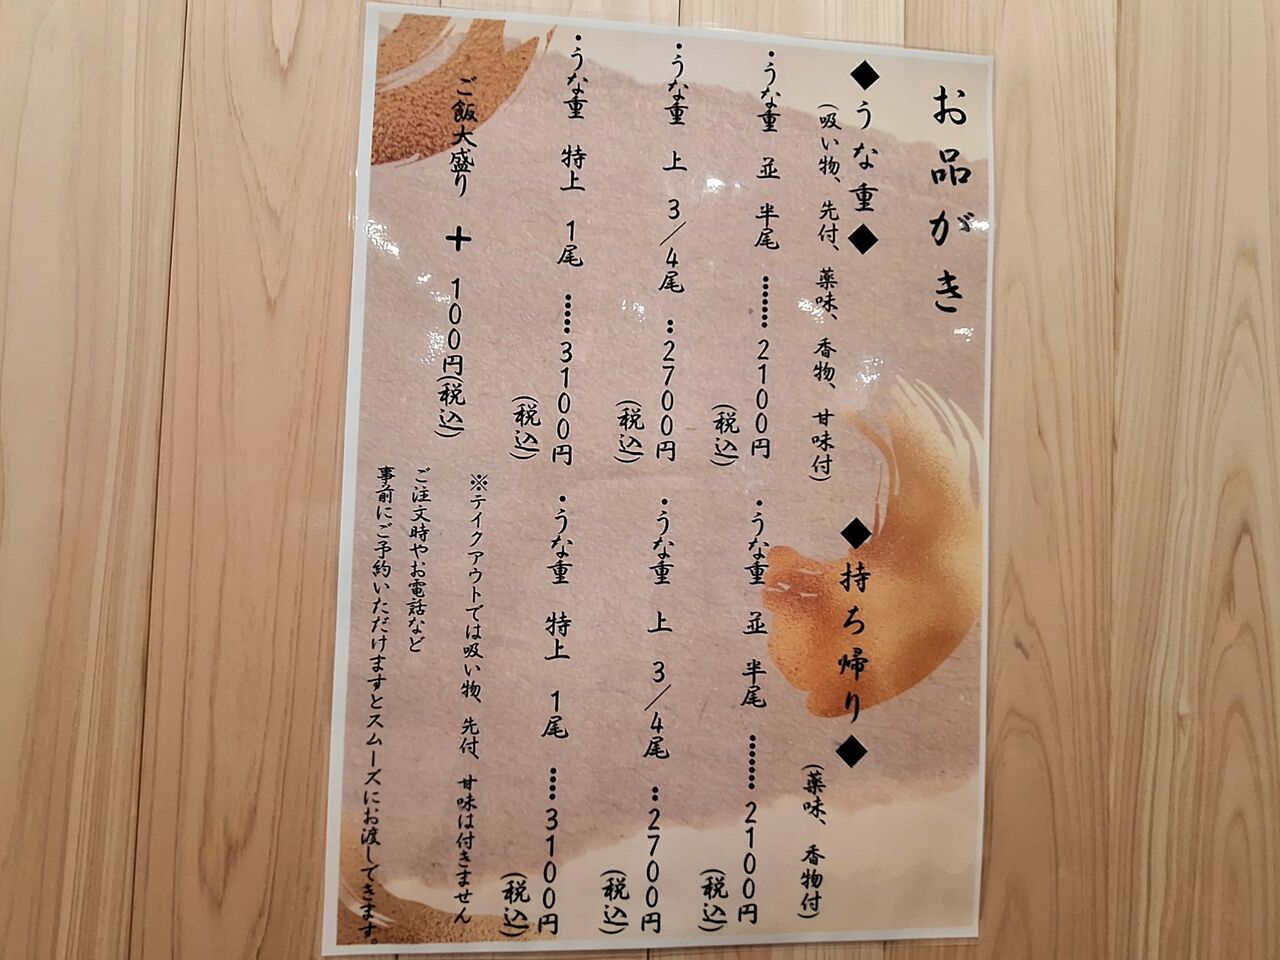 お品がき
◆うな重◆
(吸い物、先付、薬味、香物、甘味付)
・うな重 並 半尾 ……2100円
(税込)
・うな重 上 3/4尾 …2700円
(税込)
・うな重 特上 1尾 ……3100円
(税込)
ご飯大盛り + 100円(税込)
◆持ち帰り◆
(薬味、香物付)
・うな重 並 半尾 ……2100円
(税込)
・うな重 上 3/4尾 …2700円
(税込)
・うな重 特上 1尾 ……3100円
(税込)
※テイクアウトでは吸い物、先付、甘味は付きません
ご注文時やお電話など
事前にご予約いただけますとスムーズにお渡しできます。